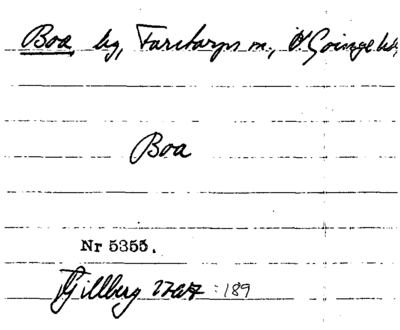 Boa, by, Farstorps sn, V. Göinge hd,
Boa
Nr 5355.
Gillberg 1767 : 189